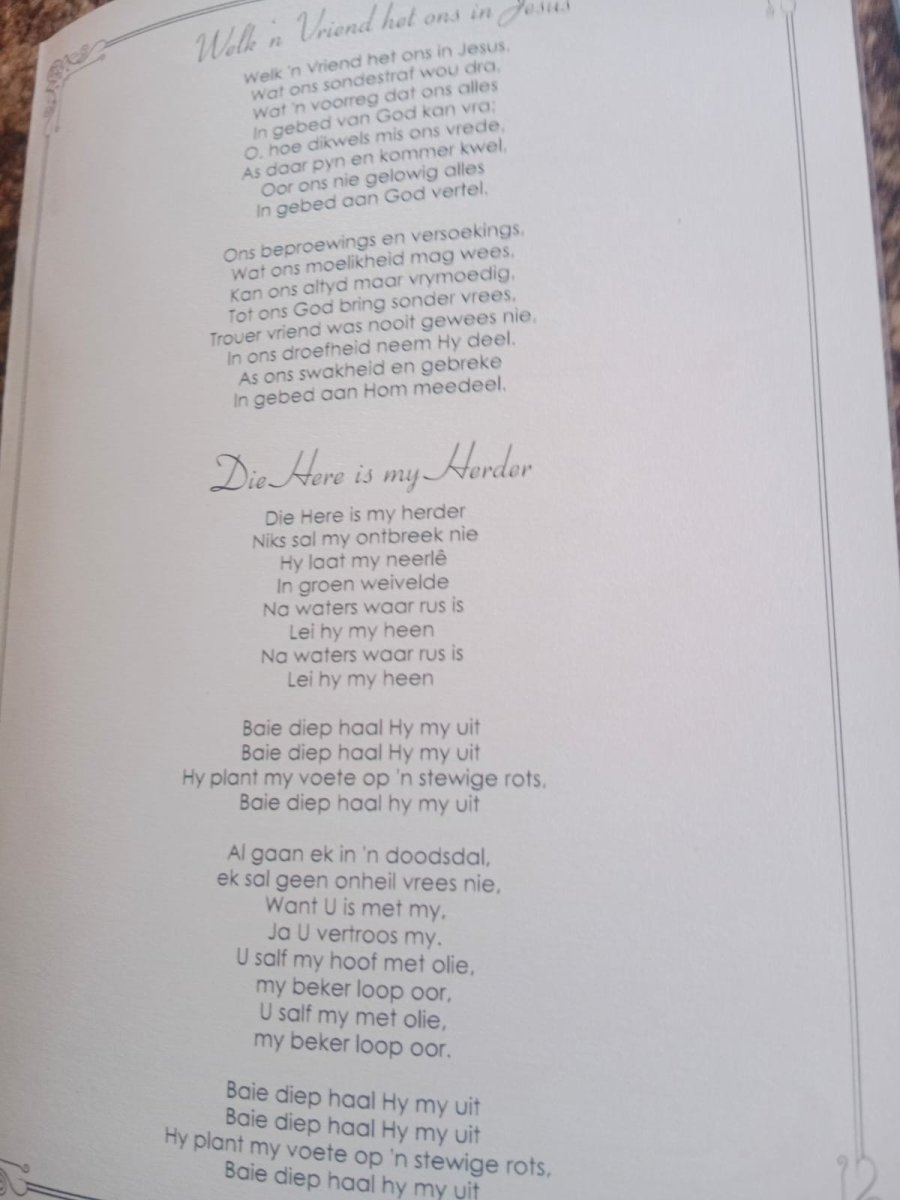 Welk 'n Vriend het ons in Jesus
Welk 'n Vriend het ons in Jesus,
Wat ons sondestraf wou dra,
Wat 'n voorreg dat ons alles
In gebed van God kan vra;
O, hoe dikwels mis ons vrede,
As daar pyn en kommer kwel,
Oor ons nie gelowig alles
In gebed aan God vertel.
Ons beproewings en versoekings,
Wat ons moelikheid mag wees,
Kan ons altyd maar vrymoedig,
Tot ons God bring sonder vrees,
Trouer vriend was nooit gewees nie,
In ons droefheid neem Hy deel.
As ons swakheid en gebreke
In gebed aan Hom meedeel.
Die Here is my Herder
Die Here is my herder
Niks sal my ontbreek nie
Hy laat my neerlê
In groen weivelde
Na waters waar rus is
Lei hy my heen
Na waters waar rus is
Lei hy my heen
Baie diep haal Hy my uit
Baie diep haal Hy my uit
Hy plant my voete op 'n stewige rots,
Baie diep haal hy my uit
Al gaan ek in 'n doodsdal,
ek sal geen onheil vrees nie,
Want U is met my,
Ja U vertroos my.
U salf my hoof met olie,
my beker loop oor,
U salf my met olie,
my beker loop oor.
Baie diep haal Hy my uit
Baie diep haal Hy my uit
Hy plant my voete op 'n stewige rots,
Baie diep haal hy my uit